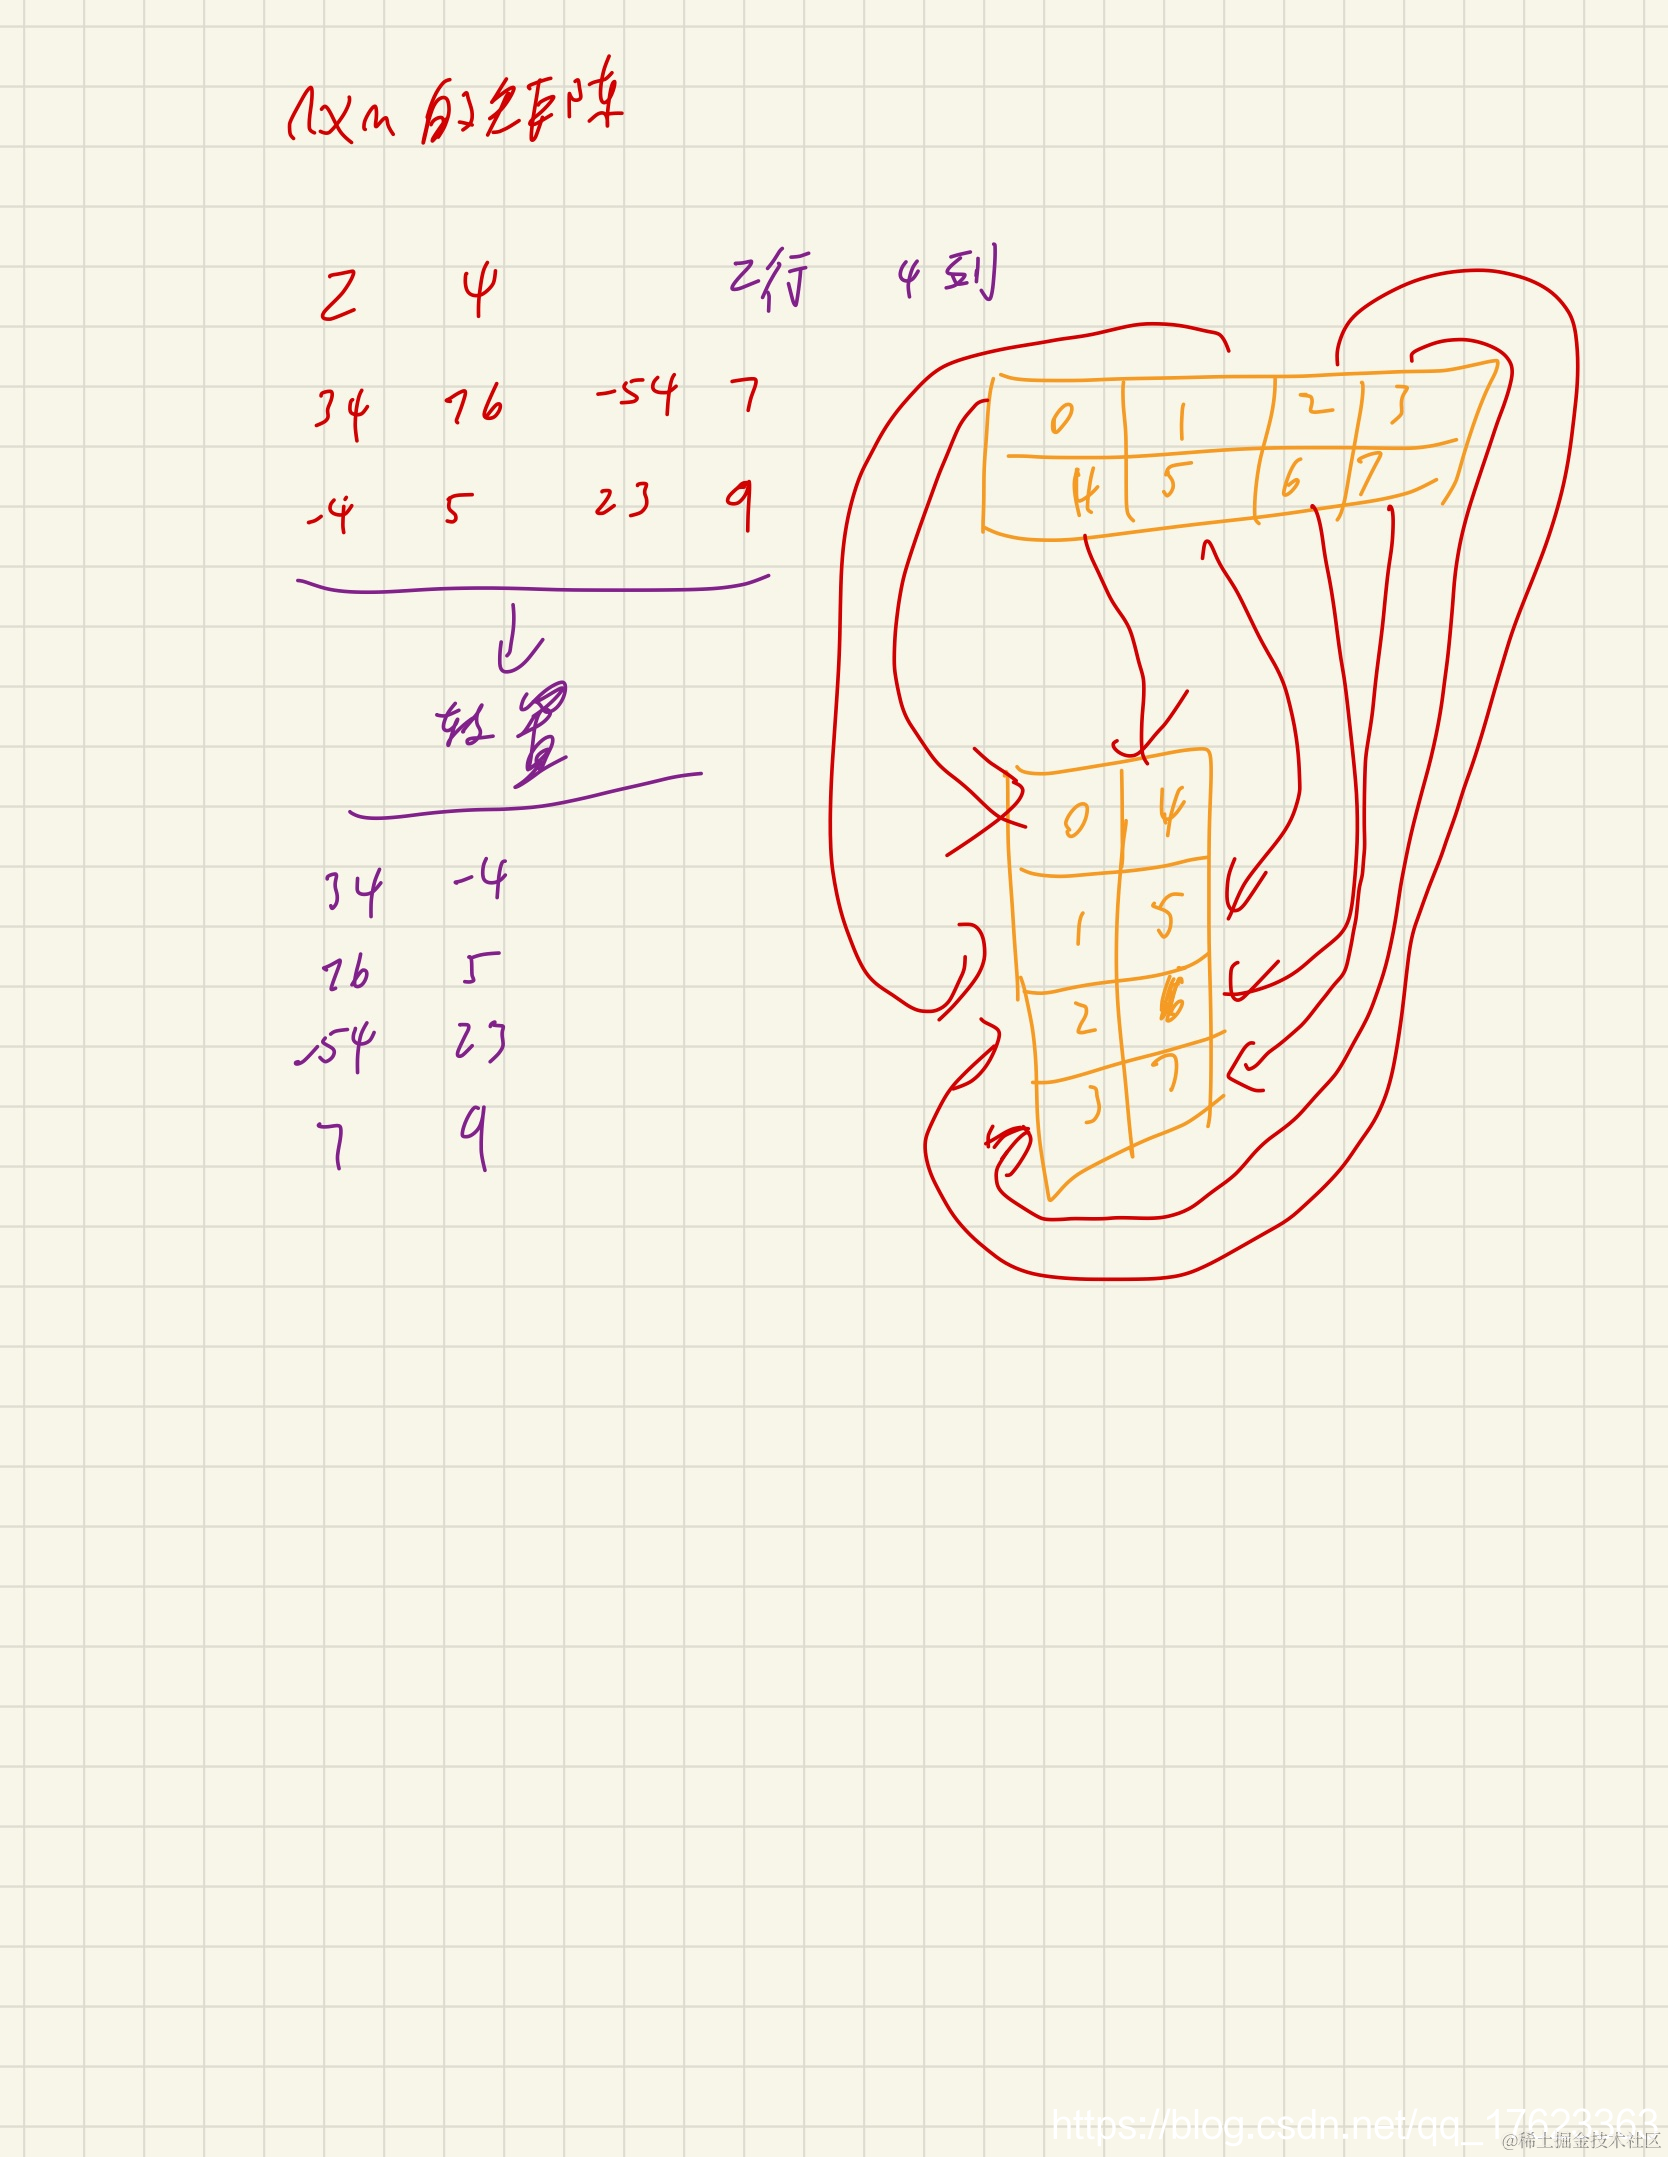 nxn的矩阵
2 4 2行 4到
34 76 -54 7
-4 5 23 9
转置
34 -4
76 5
-54 23
7 9
0 1 2 3
4 5 6 7
0 4
1 5
2 6
3 7
https://blog.csdn.net/qq_17623363
@稀土掘金技术社区